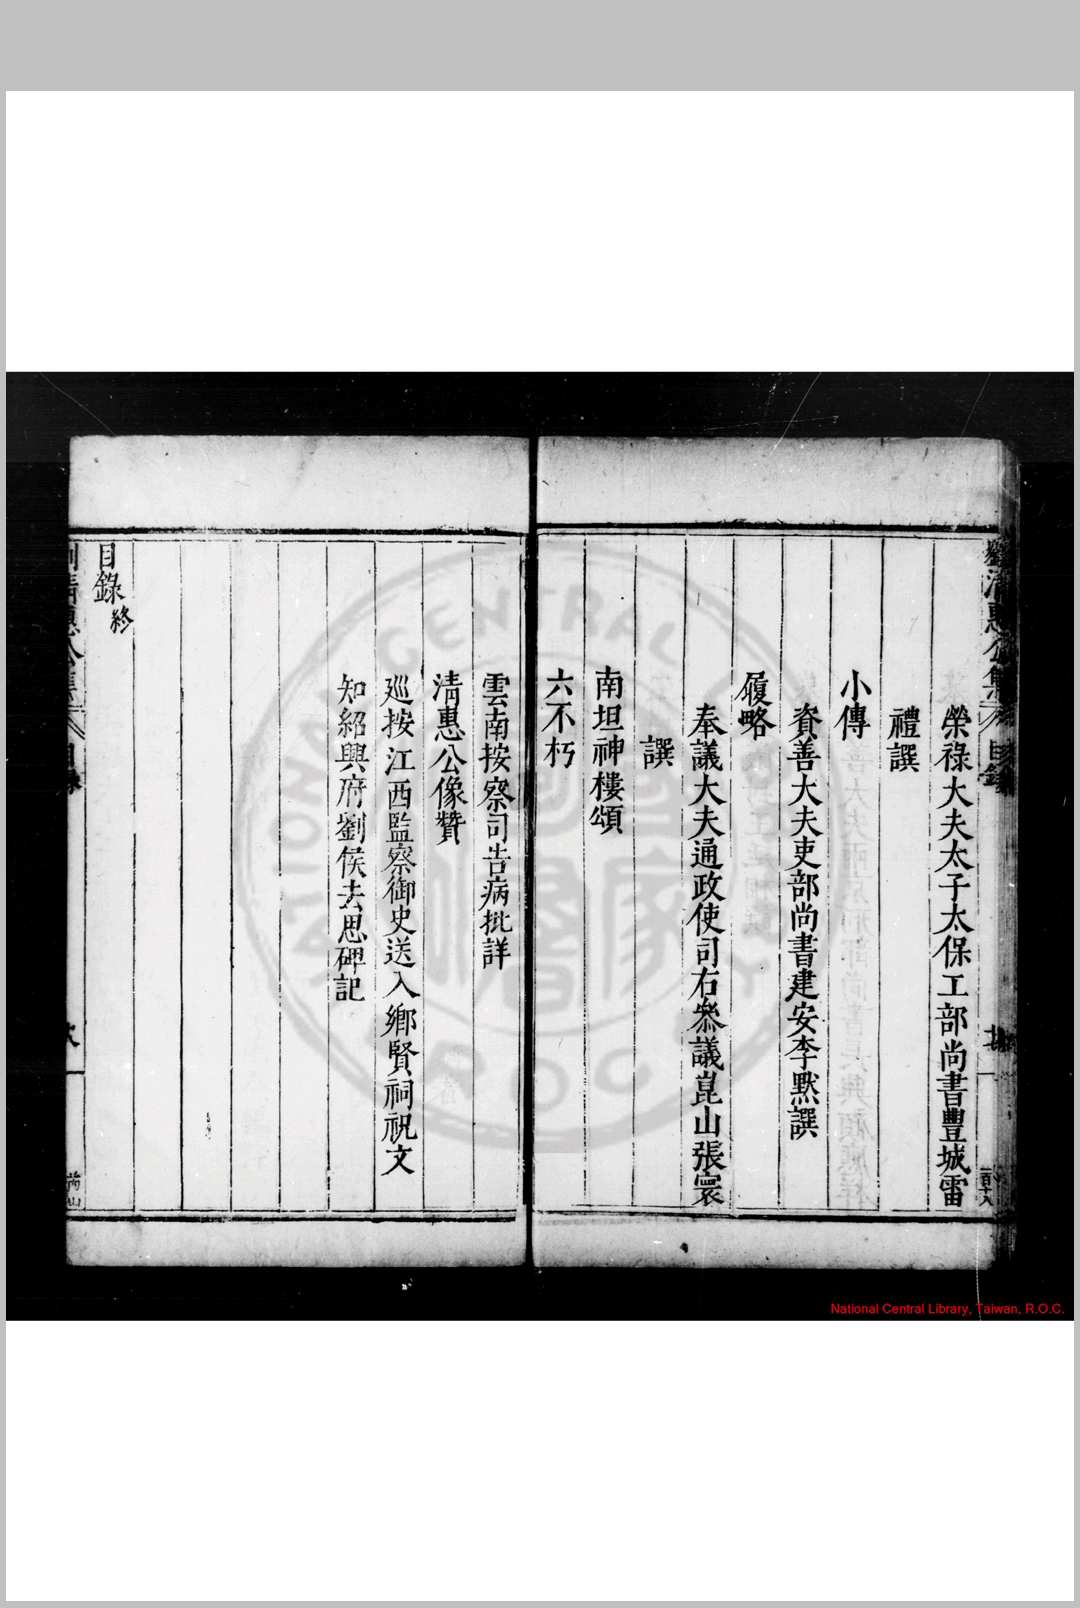 榮祿大夫太子太保工部尚書豐城雷
禮譔
小傳
資善大夫吏部尚書建安李默譔
履略
奉議大夫通政使司右叅議崑山張寰
譔
南坦神樓頌
六不朽
雲南按察司告病批詳
清惠公像贊
廵按江西監察御史送入鄉賢祠祝文
知紹興府劉侯去思碑記
目錄終
劉清惠公集
目錄
National Central Library, Taiwan, R.O.C.